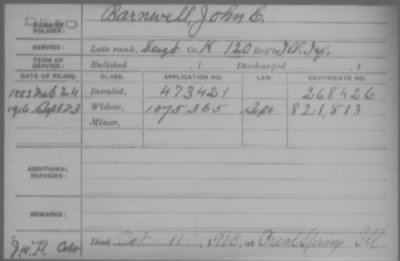 Barnwell, John E.
NAME OF SOLDIER:
SERVICE: Late rank, Sergt Co. K 120 Reg't Ill. Inf.
TERM OF SERVICE: Enlisted , 1 Discharged , 1
DATE OF FILING. CLASS. APPLICATION NO. LAW. CERTIFICATE NO.
1883 Feb 24 Invalid, 473421 268426
1916 Sept 23 Widow, 1075365 Sept 821,813
Minor,
ADDITIONAL SERVICES:
REMARKS:
Died Oct 11, 1915, at Creal Springs Ill